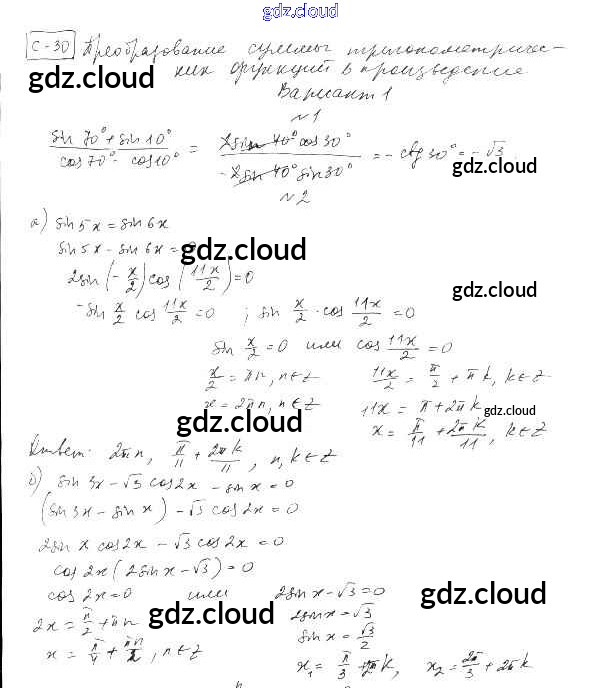 gdz.cloud
С-30 Преобразование суммы тригонометричес-
ких функций в произведение
gdz.cloud
Вариант 1
№1
(sin 70° + sin 10°)/(cos 70° - cos 10°) = (2 sin 40° cos 30°)/(-2 sin 40° sin 30°) = -ctg 30° = -√3
gdz.cloud
gdz.cloud
№2
а) sin 5x = sin 6x
sin 5x - sin 6x = 0
gdz.cloud
2 sin (-x/2) cos (11x/2) = 0
gdz.cloud
-sin x/2 cos 11x/2 = 0 ; sin x/2 · cos 11x/2 = 0
sin x/2 = 0 или cos 11x/2 = 0
gdz.cloud
x/2 = πn, n∈Z 11x/2 = π/2 + πk, k∈Z
x = 2πn, n∈Z 11x = π + 2πk
gdz.cloud
gdz.cloud
x = π/11 + 2πk/11, k∈Z
Ответ: 2πn, π/11 + 2πk/11, n, k∈Z
б) sin 3x - √3 cos 2x - sin x = 0
(sin 3x - sin x) - √3 cos 2x = 0
gdz.cloud
2 sin x cos 2x - √3 cos 2x = 0
cos 2x (2 sin x - √3) = 0
cos 2x = 0 или 2 sin x - √3 = 0
gdz.cloud
gdz.cloud
2x = π/2 + πn 2 sin x = √3
sin x = √3/2
x = π/4 + πn/2, n∈Z
gdz.cloud
x₁ = π/3 + 2πk, x₂ = 2π/3 + 2πk